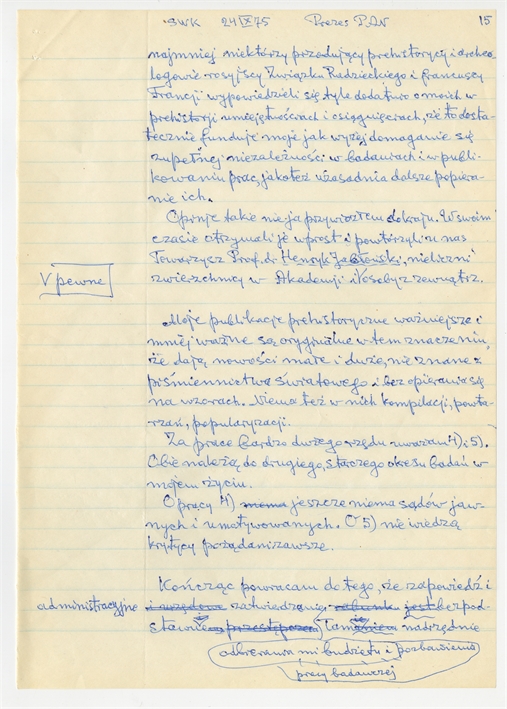 SWK 24 IX 75 Prezes PAN 15
najmniej niektórzy przodujący prehistorycy i archeo-
logowie rosyjscy Związku Radzieckiego i francuscy
Francji wypowiedzieli się tyle dodatnio o moich w
prehistorji umiejętnościach i osiągnięciach, że to dosta-
tecznie funduje moje jak wyżej domaganie się
zupełnej niezależności w badaniach i w publi-
kowaniu prac, jakoteż uzasadnia dalsze popiera-
nie ich.
Opinje takie nie ja przywiozłem do kraju. W swoim
czasie otrzymali je wprost i powtórzyli u nas
Towarzysz Prof. dr Henryk Jabłoński, nieliczni
zwierzchnicy w Akademji i osoby z zewnątrz.
V pewne
Moje publikacje prehistoryczne ważniejsze i
mniej ważne są oryginalne w tem znaczeniu,
że dają nowości małe i duże, nie znane z
piśmiennictwa światowego i bez opierania się
na wzorach. Niema też w nich kompilacji, powta-
rzań, popularyzacji.
Za prace bardzo dużego rzędu uważam 4) i 5).
Obie należą do drugiego, starczego okresu badań w
mojem życiu.
O pracy 4) jeszcze niema sądów jaw-
nych i umotywowanych. O 5) nie wiedzą
krytycy pożądani zawsze.
Kończąc powracam do tego, że zapowiedź i
administracyjne i urzędowe zatwierdzanie jest bezpod-
stawnie nadrzędnie
odbierania mi budżetu i pozbawienia
pracy badawczej